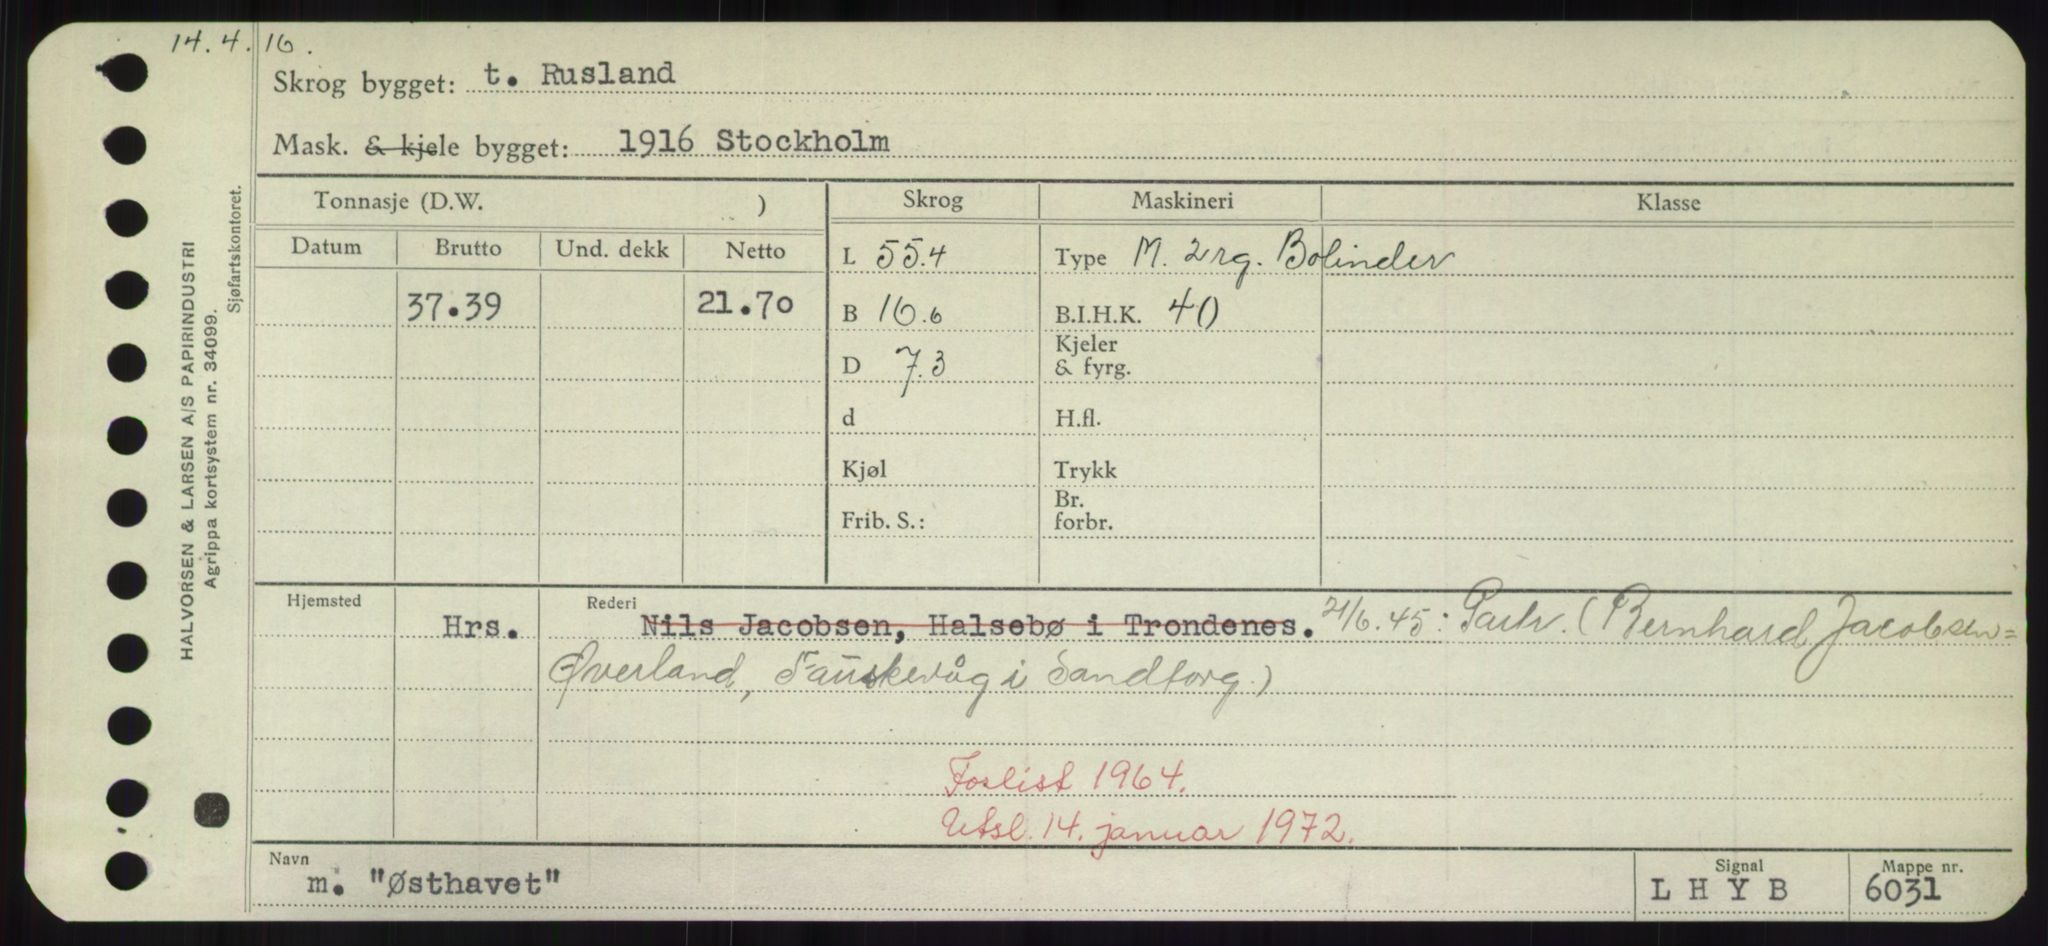 14.4.16.
Skrog bygget: t. Rusland
Mask. & kjele bygget: 1916 Stockholm
Tonnasje (D.W. )
Skrog
Maskineri
Klasse
Datum
Brutto
Und. dekk
Netto
L 55.4
Type M. 2 rg. Bolinder
37.39
21.70
B 16.6
B.I.H.K. 40
Kjeler
& fyrg.
D 7.3
d
H.fl.
Kjøl
Trykk
Br.
forbr.
Frib. S.:
Hjemsted
Hrs.
Rederi
Nils Jacobsen, Halsebø i Trondenes. 21/6.45: Partr. (Bernhard Jacobsen=
Øverland, Fauskevåg i Sandtorg.)
Forlist 1964.
Utsl. 14. januar 1972.
Navn
m. "Østhavet"
Signal
L H Y B
Mappe nr.
6031
HALVORSEN & LARSEN A/S PAPIRINDUSTRI
Agrippa kortsystem nr. 34099.
Sjøfartskontoret.